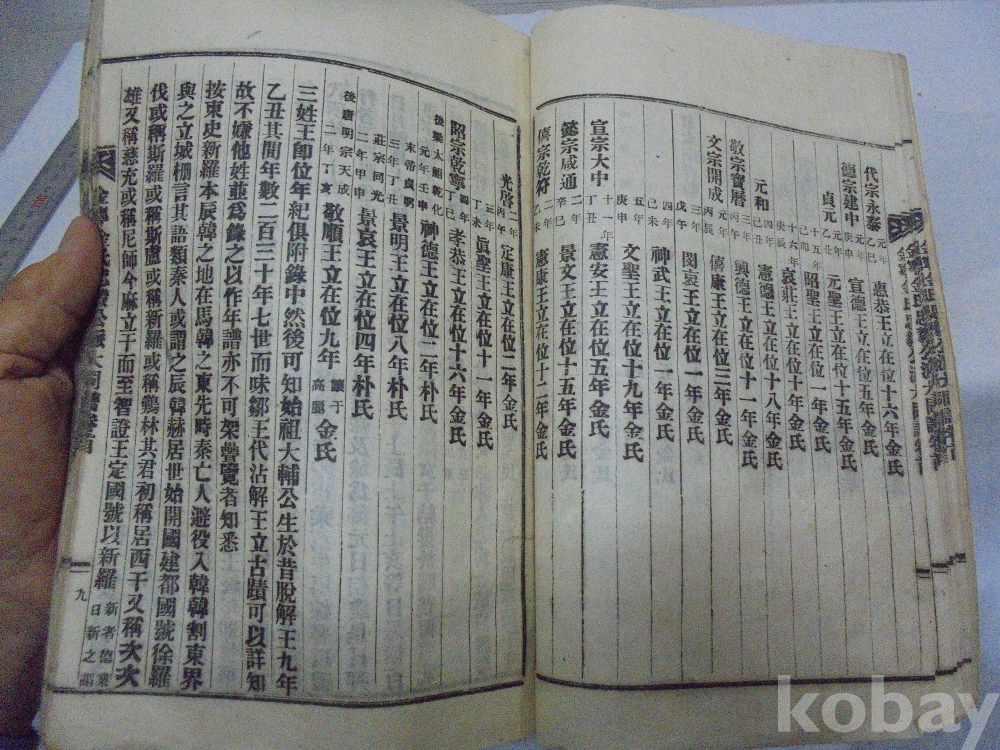 代宗永泰 元年乙巳 惠恭王立在位十六年金氏
德宗建中 元年庚申 宣德王立在位五年金氏
貞元 元年乙丑 元聖王立在位十五年金氏
十五年己卯 昭聖王立在位一年金氏
十六年庚辰 哀莊王立在位十年金氏
元和 四年己丑 憲德王立在位十八年金氏
敬宗寶曆 二年丙午 興德王立在位十一年金氏
文宗開成 元年丙辰 僖康王立在位二年金氏
三年戊午 閔哀王立在位一年金氏
四年己未 神武王立在位四月金氏
五年庚申 文聖王立在位十九年金氏
宣宗大中 十一年丁丑 憲安王立在位五年金氏
懿宗咸通 二年辛巳 景文王立在位十五年金氏
僖宗乾符 二年乙未 憲康王立在位十二年金氏
光啓 二年 定康王立在位二年金氏
三年丁未 眞聖王立在位十一年金氏
昭宗乾寧 四年丁巳 孝恭王立在位十六年金氏
後梁太祖乾化 元年壬申 神德王立在位二年朴氏
末帝貞明 三年丁丑 景明王立在位八年朴氏
莊宗同光 二年甲申 景哀王立在位四年朴氏
後唐明宗天成 二年丁亥 敬順王立在位九年 讓于高麗 金氏
三姓王卽位年紀俱附錄中然後可知始祖大輔公生於昔脫解王九年
乙丑其間年數二百三十年七世而味鄒王代沾解王立古蹟可以詳知
故不嫌他姓並爲錄之以作年譜亦不可架疊覽者知悉
按東史新羅本辰韓之地在馬韓之東先時秦亡人避役入韓韓割東界
與之立城柵言其語類秦人或謂之辰韓赫居世始開國建都國號徐羅
伐或稱斯羅或稱斯盧或稱新羅或稱鷄林其君初稱居西干又稱次次
雄又稱慈充或稱尼師今麻立干而至智證王定國號以新羅 新者德業日新之謂
九
kobay